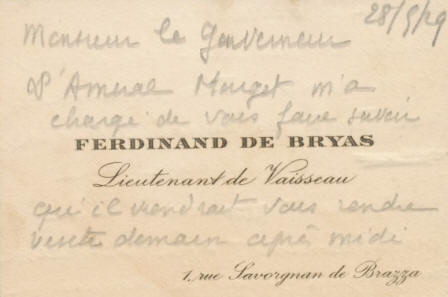 28/5/29
Monsieur le Gouverneur
L'Amiral m'a
chargé de vous faire savoir
FERDINAND DE BRYAS
Lieutenant de Vaisseau
qu'il viendrait vous rendre
visite demain après midi
1, rue Savorgnan de Brazza